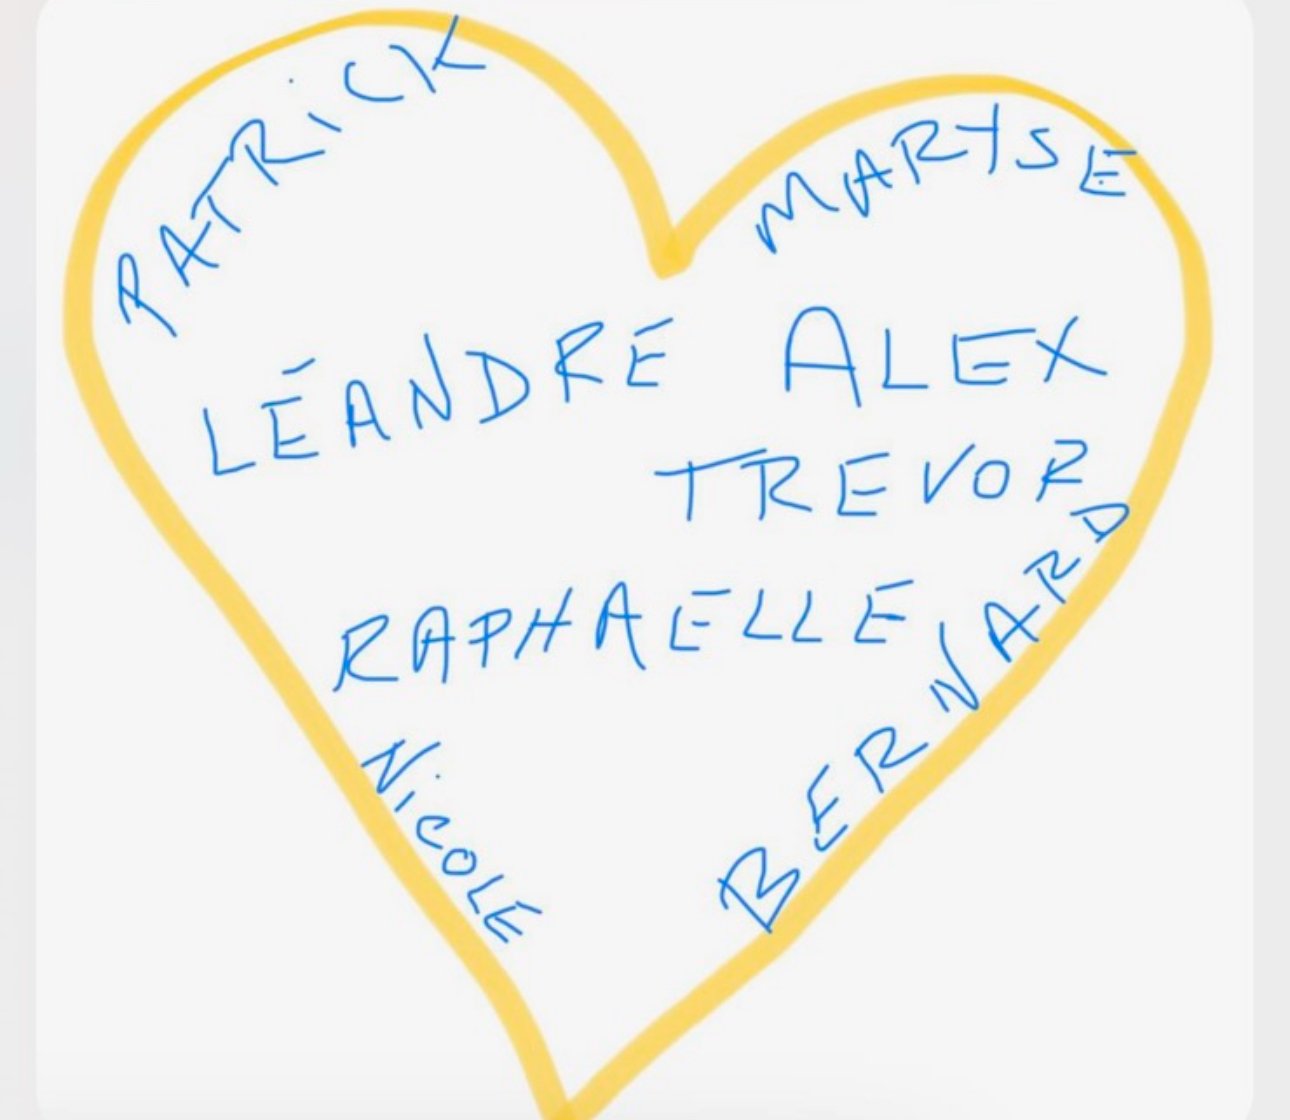 PATRiCK
MARYSE
LÉANDRE ALEX
TREVOR
RAPHAELLE
BERNARD
NiCOLE